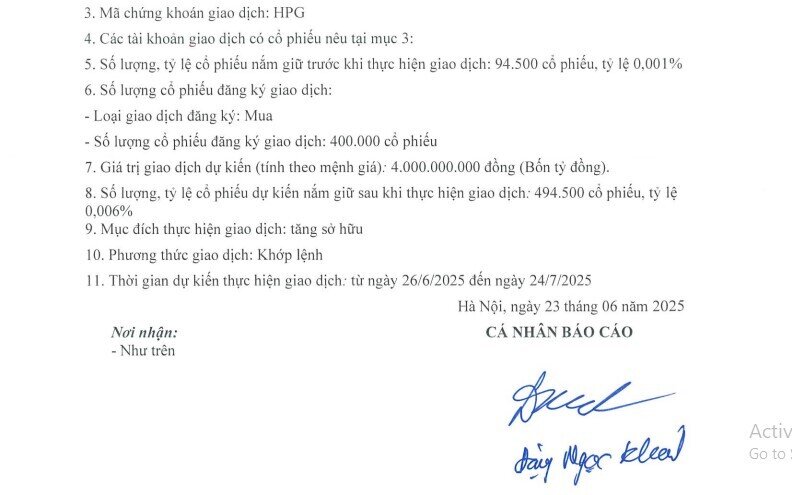 3. Mã chứng khoán giao dịch: HPG
4. Các tài khoản giao dịch có cổ phiếu nêu tại mục 3:
5. Số lượng, tỷ lệ cổ phiếu nắm giữ trước khi thực hiện giao dịch: 94.500 cổ phiếu, tỷ lệ 0,001%
6. Số lượng cổ phiếu đăng ký giao dịch:
- Loại giao dịch đăng ký: Mua
- Số lượng cổ phiếu đăng ký giao dịch: 400.000 cổ phiếu
7. Giá trị giao dịch dự kiến (tính theo mệnh giá): 4.000.000.000 đồng (Bốn tỷ đồng).
8. Số lượng, tỷ lệ cổ phiếu dự kiến nắm giữ sau khi thực hiện giao dịch: 494.500 cổ phiếu, tỷ lệ
0,006%
9. Mục đích thực hiện giao dịch: tăng sở hữu
10. Phương thức giao dịch: Khớp lệnh
11. Thời gian dự kiến thực hiện giao dịch: từ ngày 26/6/2025 đến ngày 24/7/2025
Hà Nội, ngày 23 tháng 06 năm 2025
Nơi nhận:
CÁ NHÂN BÁO CÁO
- Như trên
Ngọc
Activ
Go to S